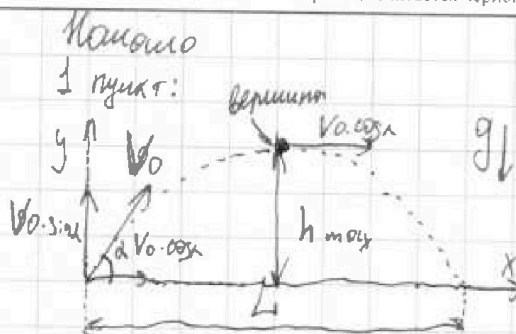 Начало
1 пункт:
вершина
y V₀ V₀·cosα g
V₀·sinα
α V₀·cosα h max
x
L